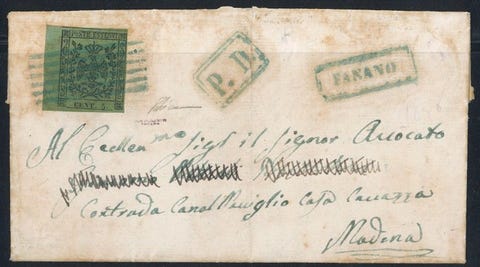 POSTE ESTENSI
CENT. 5
P. D.
FANANO
Al Eccllen mo Sigr il Signor Avvocato
Contrada Canal Naviglio Casa
Modena